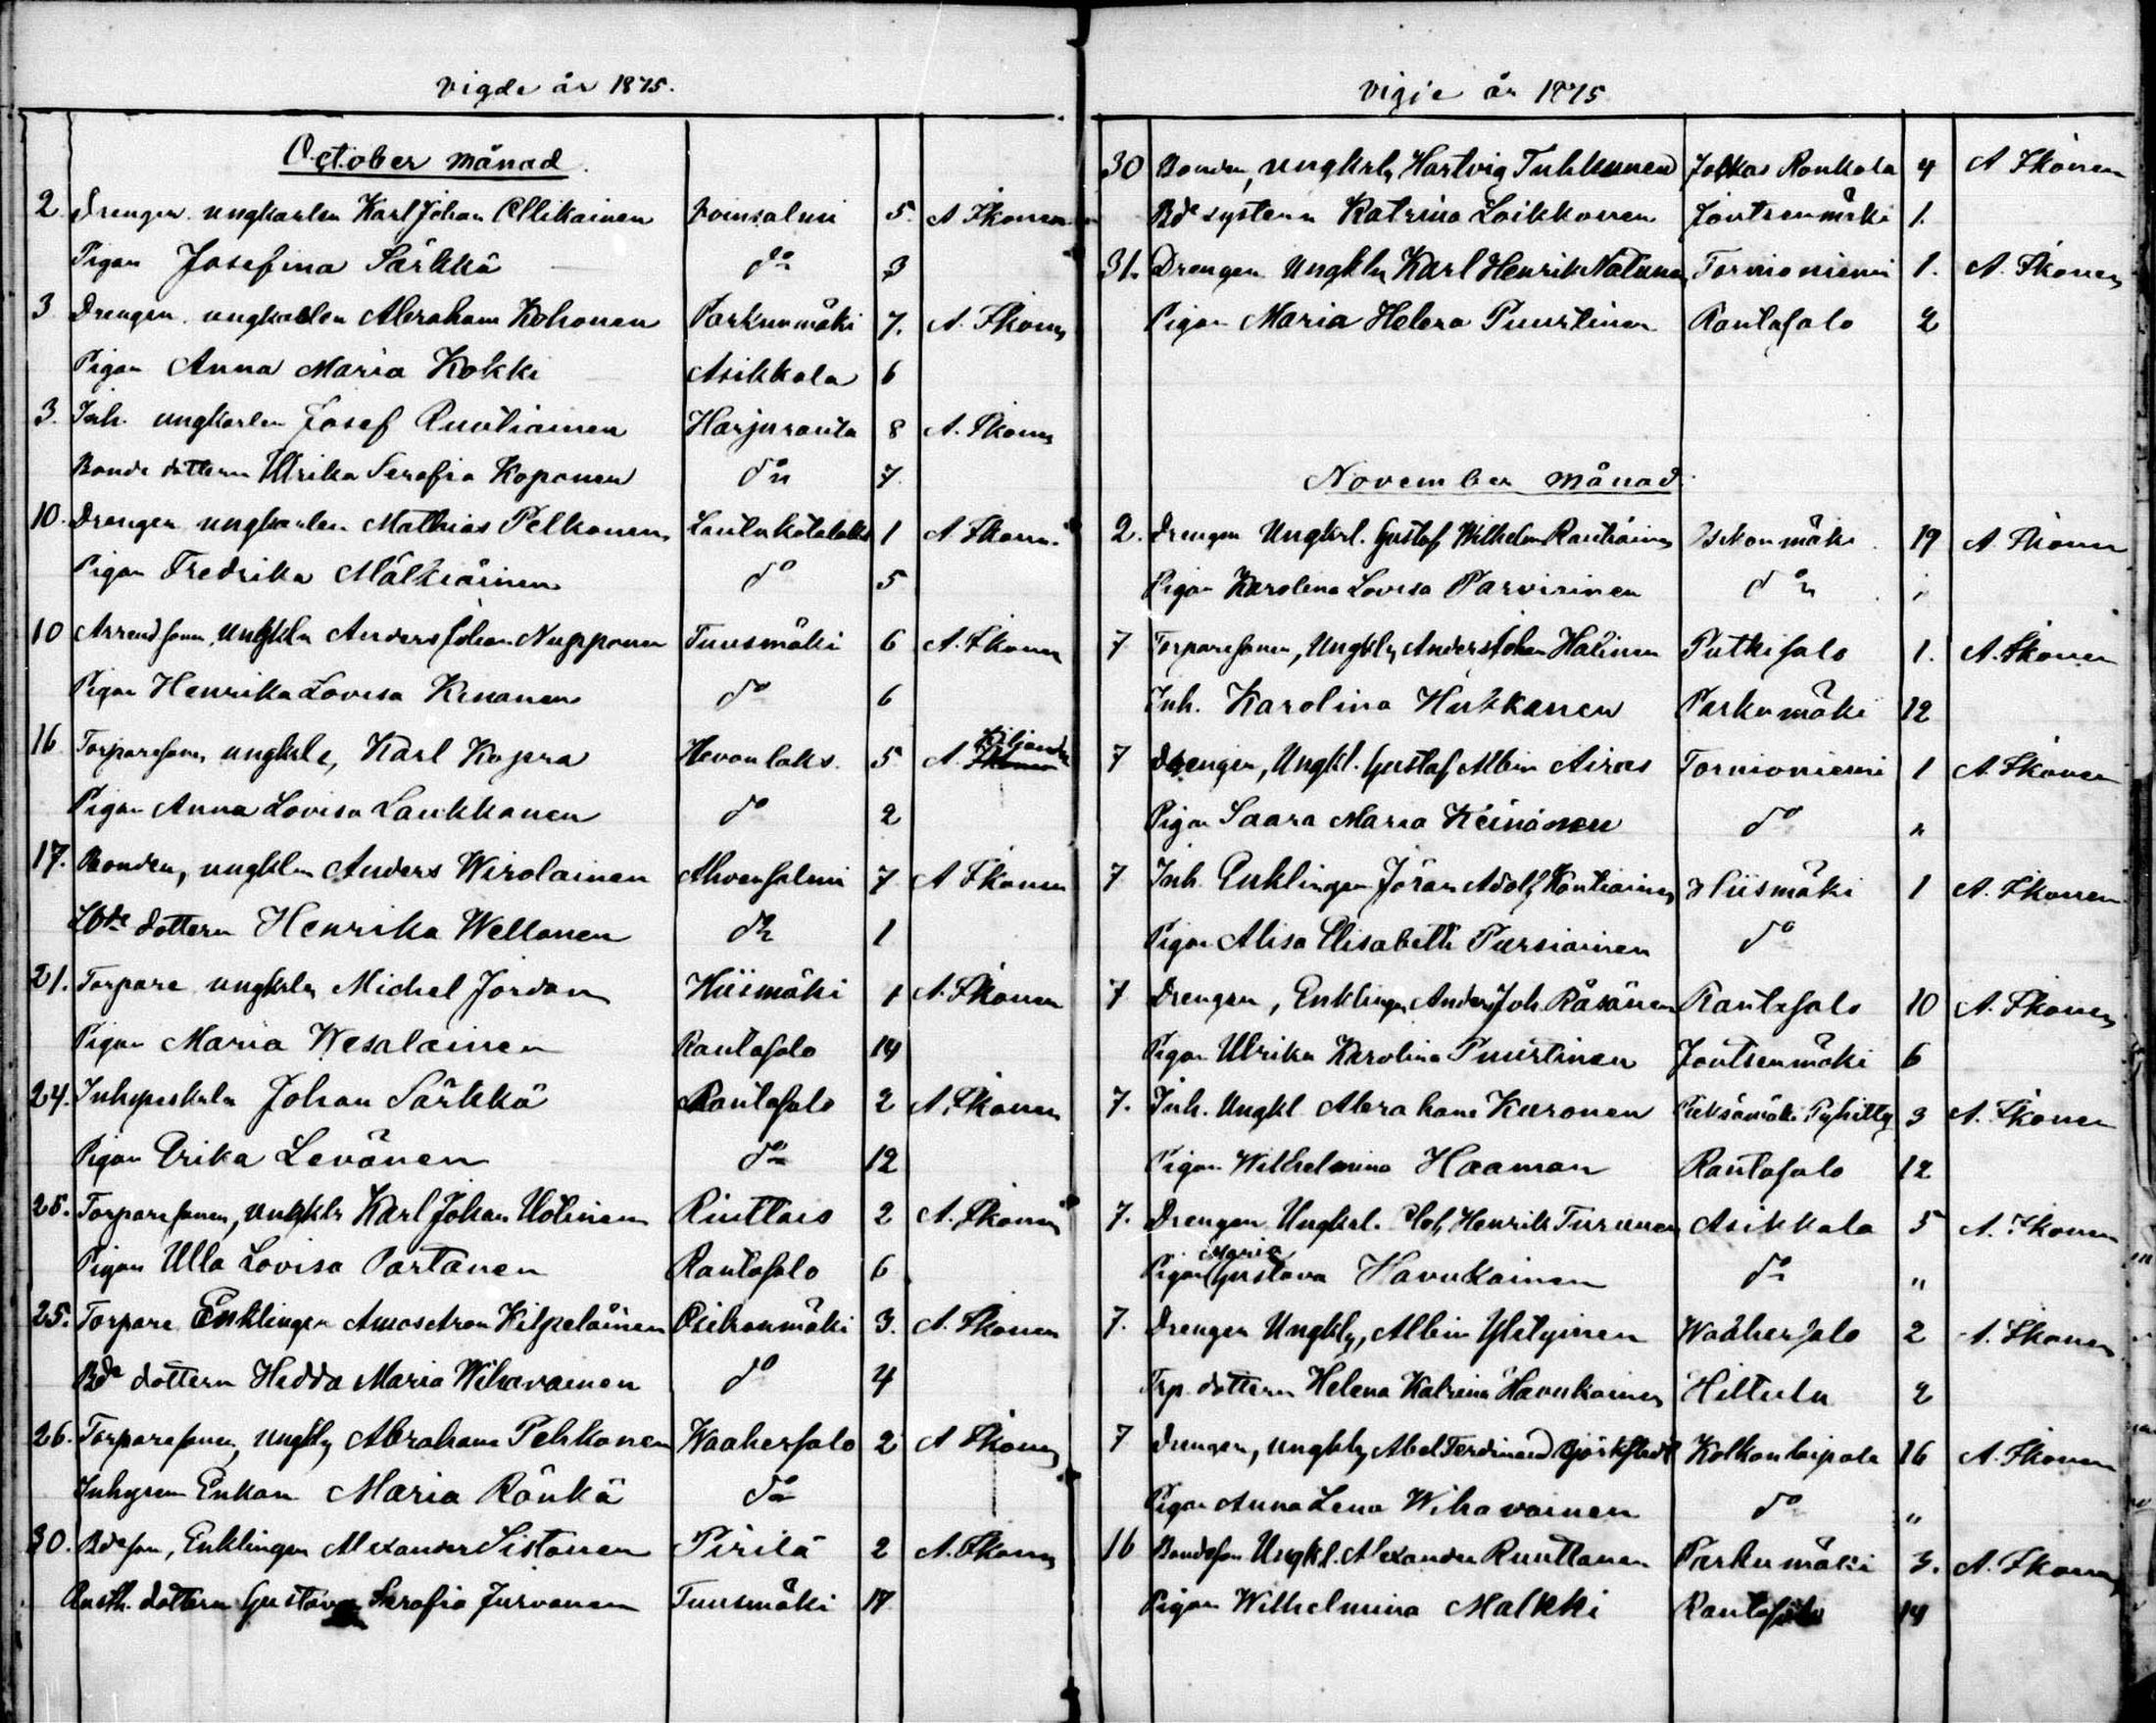 Vigde år 1875.
October månad.
2. Drengen ungkarlen Karl Johan Ollikainen Voinsalmi 5. A. Ikonen
Pigan Josefina Särkkä do 3
3 Drengen ungkarlen Abraham Kohonen Parkunmäki 7. A. Ikonen
Pigan Anna Maria Kokki Asikkala 6
3. Inh. ungkarlen Josef Ruotiainen Harjuranta 8 A. Ikonen
Bonde dottern Ulrika Serafia Koponen do 7.
10. Drengen ungkarlen Mathias Pelkonen 1 A. Ikonen
Pigan Fredrika Mälkiäinen do 5
10 Arrend sonen Ungkln Anders Johan Nupponen Tuusmäki 6 A. Ikonen
Pigan Henrika Lovisa Kinanen do 6
16 Torparesonen ungkarln, Karl Kopra Hevonlaks. 5 A. Kiljander
Pigan Anna Lovisa Laukkanen do 2
17. Bonden, ungkln Anders Wirolainen Ahvensalmi 7 A Ikonen
Bde dottern Henrika Wellonen do 1
21. Torpare ungkarln Michel Jordan Hiismäki 1 A. Ikonen
Pigan Maria Wesalainen Rantasalo 14
24. Inhyseskarln Johan Särkkä Rantasalo 2 A. Ikonen
Pigan Erika Levänen do 12
25. Torparesonen, ungkln Karl Johan Uotinen Ruuttas 2 A. Ikonen
Pigan Ulla Lovisa Partanen Rantasalo 6
25. Torpare Enklingen Amos Aron Kilpeläinen Osikonmäki 3. A. Ikonen
Bde dottern Hedda Maria Wihavainen do 4
26. Torparesonen, ungkln Abraham Pehkonen Waahersalo 2 A Ikonen
Inhysen Enkan Maria Rönkä do
30. Bdeson, Enklingen Alexander Sistonen Pirilä 2 A. Ikonen
Rusth. dottern Gustava Serafia Jurvanen Tuusmäki 17
Vigde år 1875
30 Bonden, ungkarln Hartvig Tuhkunen Jokkas Ronkala 4 A Ikonen
Bde systern Katrina Loikkanen Joutsenmäki 1.
31. Drengen Ungkln Karl Henrik Natunen Tornioniemi 1. A. Ikonen
Pigan Maria Helena Puurtinen Rantasalo 2
November månad.
2. Drengen Ungkarl. Gustaf Wilhelm Rautiainen Osikonmäki 19 A. Ikonen
Pigan Karolina Lovisa Parvirinen do "
7 Torparesonen, Ungkln Anders Johan Halinen Putkisalo 1. A. Ikonen
Inh. Karolina Hukkanen Parkumäki 12
7 Drengen, Ungkl. Gustaf Albin Airas Tornioniemi 1 A. Ikonen
Pigan Saara Maria Keinänen do "
7 Inh. Enklingen Jöran Adolf Kontiainen Hiismäki 1 A. Ikonen
Pigan Alisa Elisabeth Pursiainen do
7 Drengen, Enklingen Anders Joh. Räsänen Rantasalo 10 A. Ikonen
Pigan Ulrika Karolina Puurtinen Joutsenmäki 6
7. Inh. Ungkl Abraham Kuronen Pieksämäki Pyhitty 3 A. Ikonen
Pigan Wilhelmina Haaman Rantasalo 12
7. Drengen Ungkarl. Olof Henrik Turunen Asikkala 5 A. Ikonen
Pigan Maria Gustava Havukainen do "
7. Drengen Ungkln, Albin Ylityinen Waahersalo 2 A. Ikonen
Trp. dottern Helena Katrina Havukainen Hiltula 2
7 Drengen, ungkln Abel Ferdinand Björkstedt Kolkontaipale 16 A. Ikonen
Pigan Anna Lena Wihavainen do "
16 Bondeson Ungkl. Alexander Ruuttanen Parkumäki 3. A. Ikonen
Pigan Wilhelmina Malkki Rantasalo 14